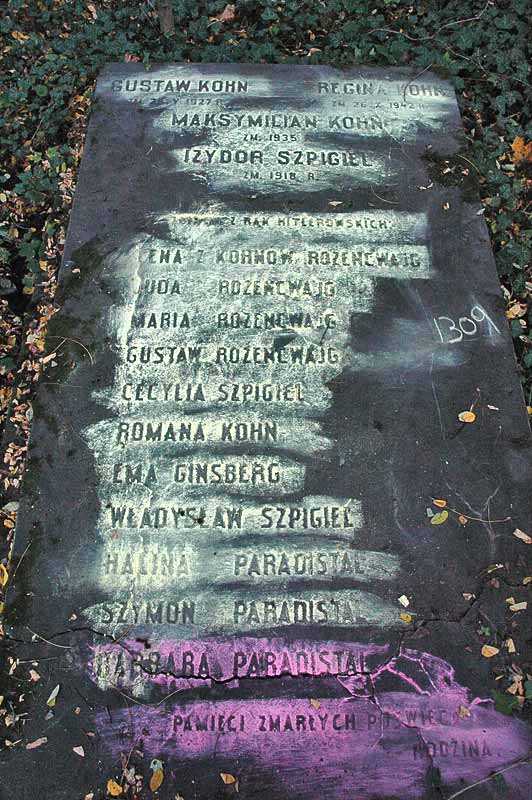 GUSTAW KOHN REGINA KOHN
1927 R. ZM. 26.X.1942 R.
MAKSYMILIAN KOHN
ZM. 1935
IZYDOR SZPIGIEL
ZM. 1918 R.
Z RĄK HITLEROWSKICH:
ENA Z KORNÓW ROZENCWAJG
UDA ROZENCWAJG
MARIA ROZENCWAJG
GUSTAW ROZENCWAJG
1309
CECYLIA SZPIGIEL
ROMANA KOHN
EMA GINSBERG
WŁADYSŁAW SZPIGIEL
HALINA PARADISTAL
SZYMON PARADISTAL
BARBARA PARADISTAL
PAMIĘCI ZMARŁYCH POŚWIĘCA
RODZINA